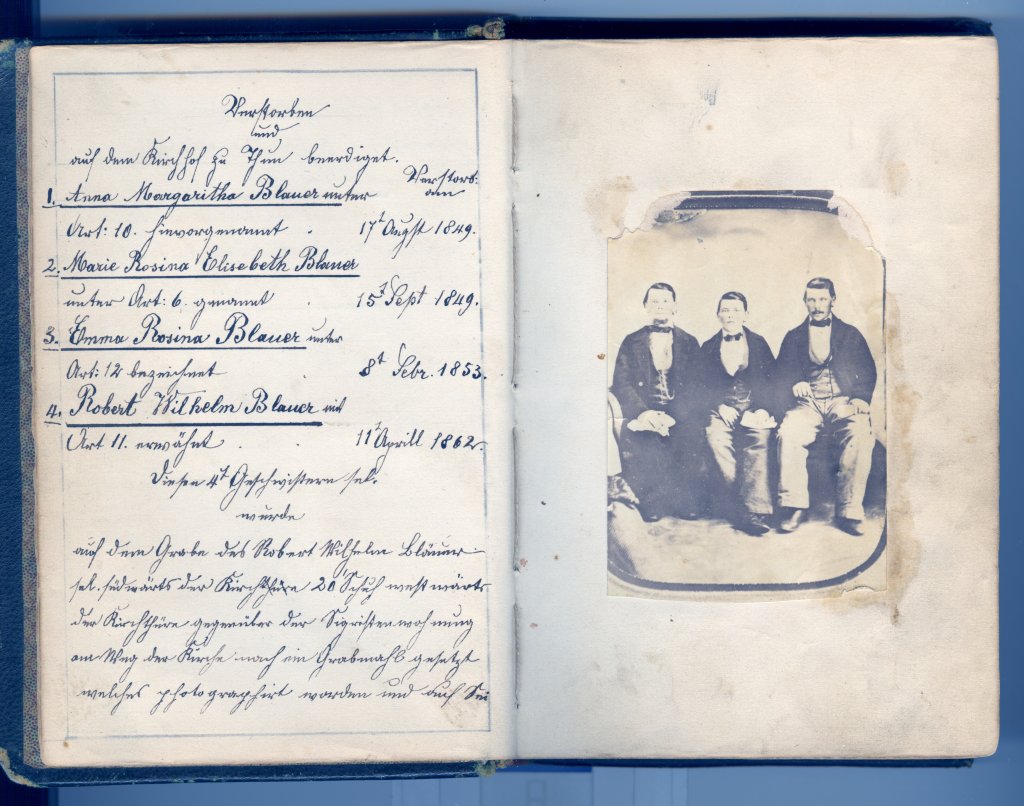 Verstorben
und
auf dem Kirchhof zu Thun beerdiget.
Verstorb:
am
1. Anna Margaritha Blauer unter
Art: 10. hievorgenannt . 17t Augst 1849.
2. Marie Rosina Elisebeth Blauer
unter Art: 6. genannt . 15t Sept 1849.
3. Emma Rosina Blauer unter
Art: 12 bezeichnet . 8t Febr. 1853.
4. Robert Wilhelm Blauer mit
Art 11. erwähnt . . 11t Aprill 1862.
Diesen 4t Geschwistern sel.
wurde
auf dem Grabe des Robert Wilhelm Bläuer
sel. südwärts der Kirchthüre 20' Schuh westwärts
der Kirchthüre gegenüber der Sigristenwohnung
am Weg der Kirche nach ein Grabmahl gesetzt
welches photographirt worden und auf Sei